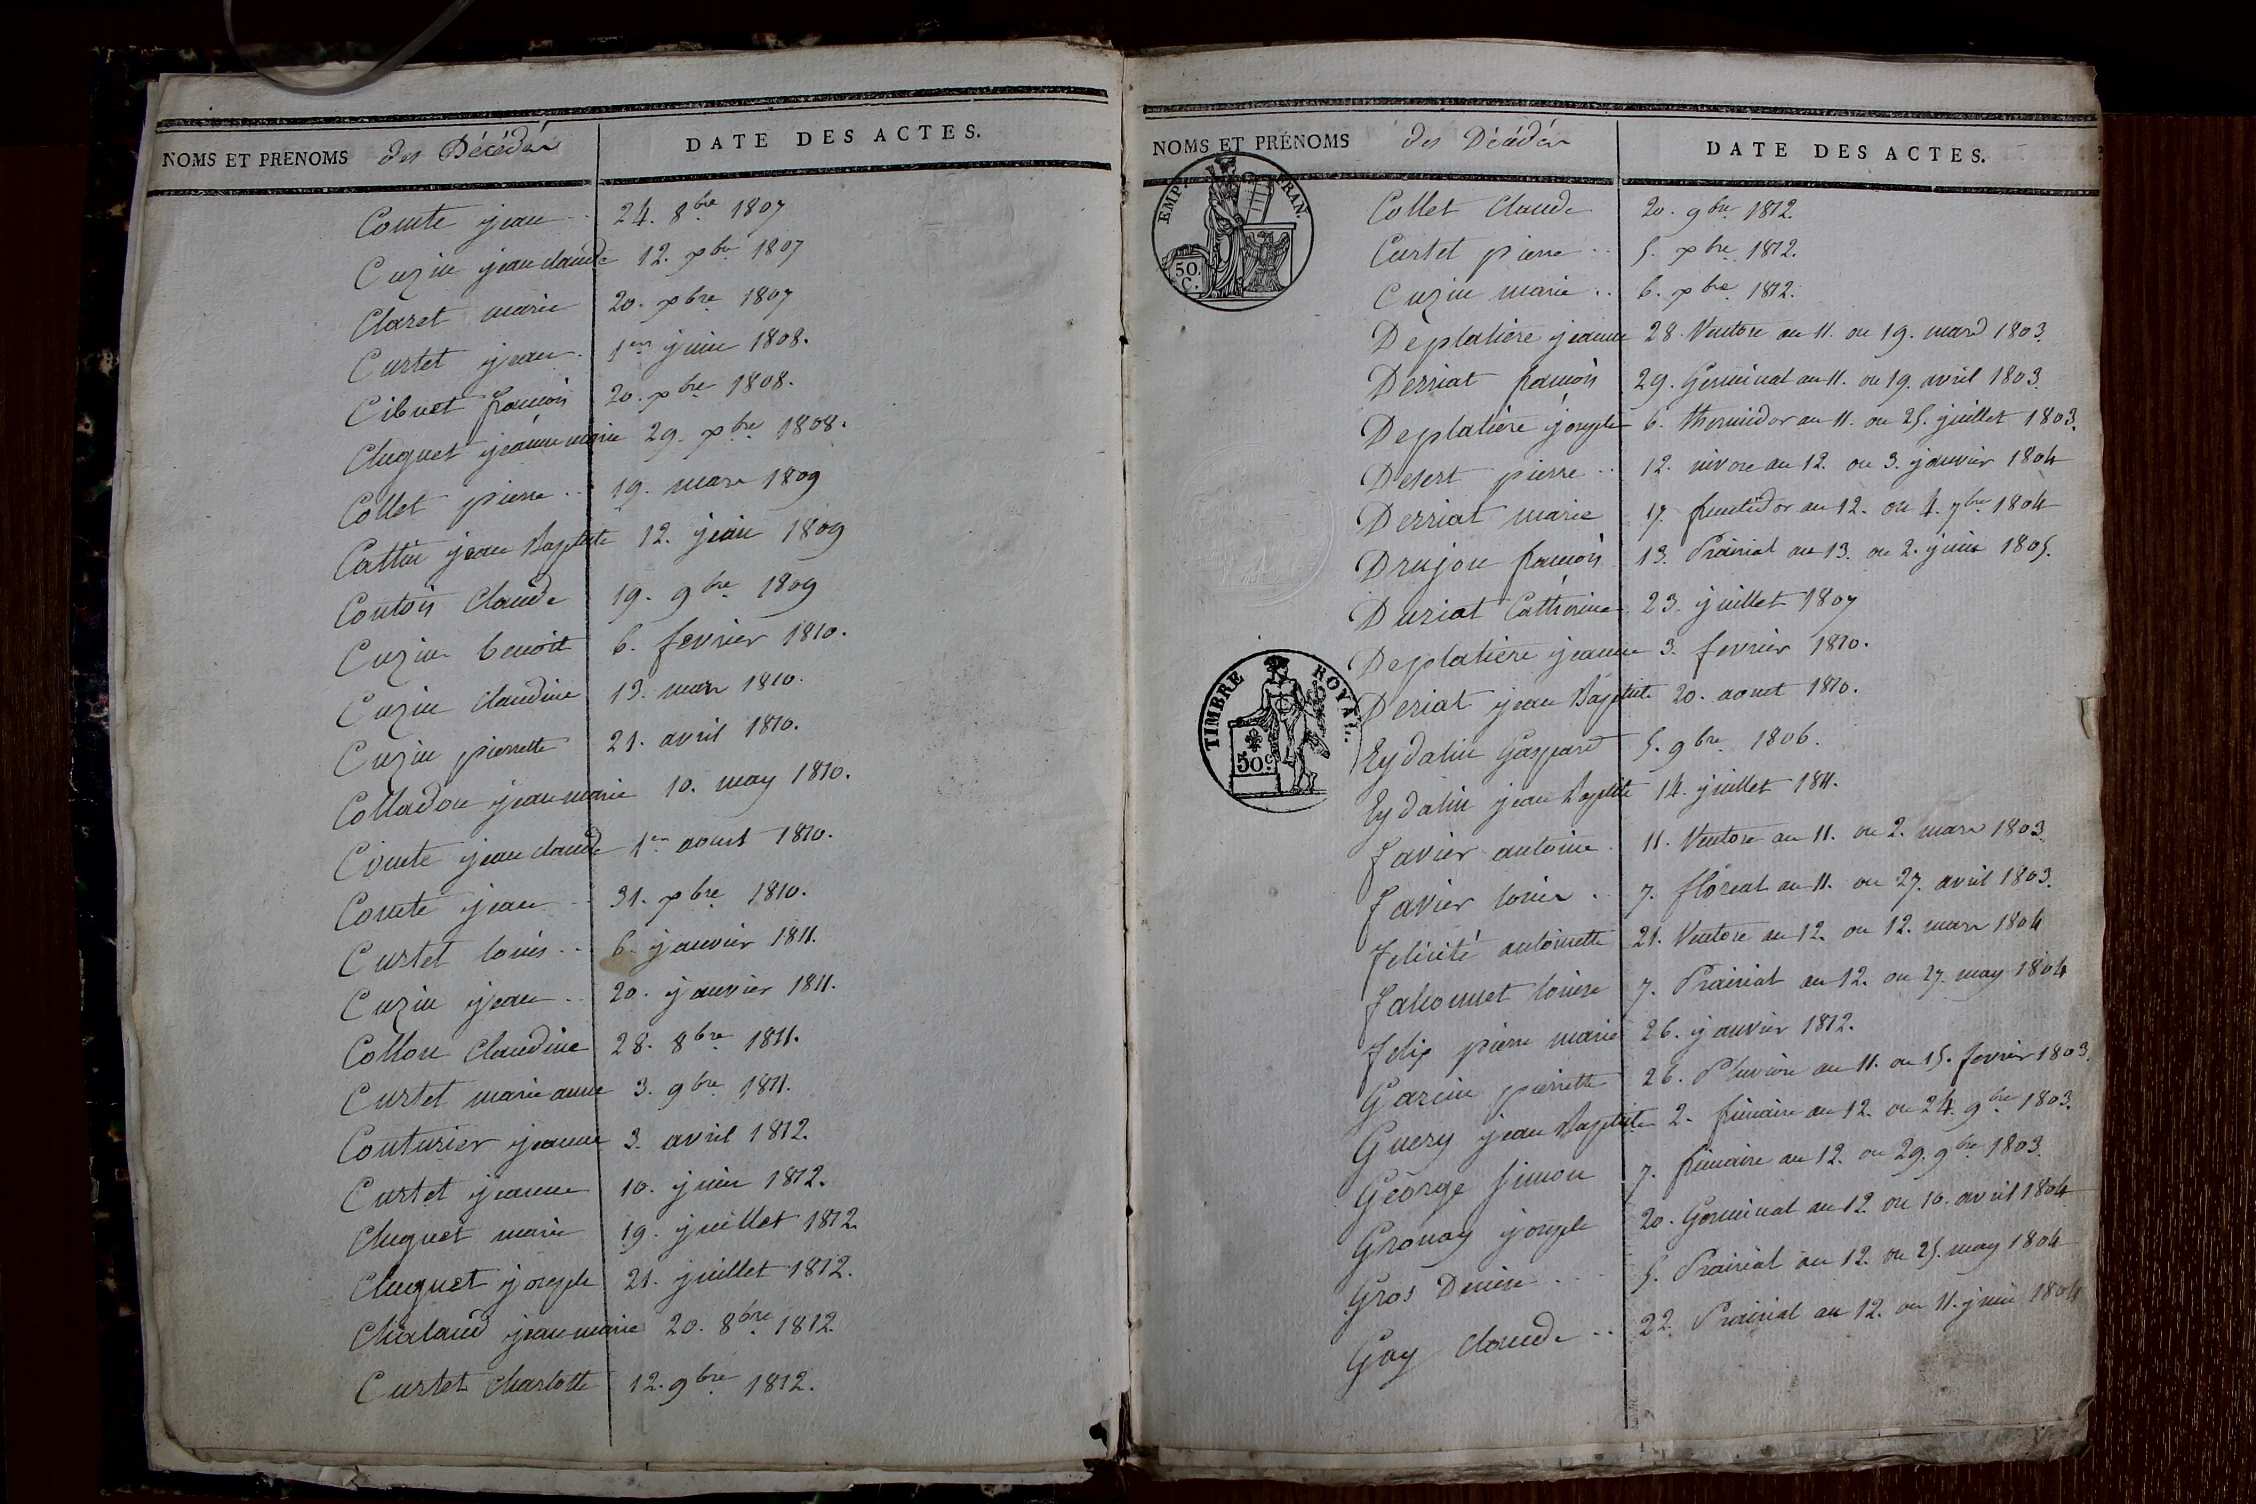 NOMS ET PRENOMS des Décédés
DATE DES ACTES.
Comte jean .. 24. 8bre 1807
Cuzin jean claude 12. xbre 1807
Claret marie 20. xbre 1807
Curtet jean . 1er juin 1808.
Cibuet francois 20. xbre 1808.
Chuquet jeanne marie 29. xbre 1808.
Collet pierre .. 19. mars 1809
Cattin jean Baptiste 12. juin 1809
Contois Claude 19. 9bre 1809
Cuzin benoit 6. fevrier 1810.
Cuzin claudine 13. mars 1810.
Cuzin pierrette 21. avril 1810.
Colladon jean marie 10. may 1810.
Comte jean claude 1er aoust 1810.
Comte jean .. 31. xbre 1810.
Curtet louis .. 6. janvier 1811.
Cuzin jean .. 20. janvier 1811.
Collon Claudine 28. 8bre 1811.
Curtet marie anne 3. 9bre 1811.
Couturier jeanne 3. avril 1812.
Curtet jeanne 10. juin 1812.
Chuquet marie 19. juillet 1812.
Chuquet joseph 21. juillet 1812.
Chaland jean marie 20. 8bre 1812.
Curtet Charlotte 12. 9bre 1812.
NOMS ET PRÉNOMS des Décédés
DATE DES ACTES.
EMP. FRAN.
50. C.
Collet Claude 20. 9bre 1812.
Curtet pierre .. 5. xbre 1812.
Cuzin marie .. 6. xbre 1812.
Deplatière jeanne 28. Ventose an 11. ou 19. mars 1803.
Derriat francois 29. Germinal an 11. ou 19. avril 1803.
Deplatière joseph 6. thermidor an 11. ou 25. juillet 1803.
Desert pierre .. 12. nivose an 12. ou 3. janvier 1804
Derriat marie 17. fructidor an 12. ou 4. 7bre 1804
Drujon francois 13. Prairial an 13. ou 2. juin 1805.
Duriat Catherine 23. juillet 1807
Deplatière jeanne 3. fevrier 1810.
Deriat jean Baptiste 20. aoust 1810.
TIMBRE ROYAL.
50c
Eydalin Gaspard 5. 9bre 1806.
Eydalin jean Baptiste 14. juillet 1811.
Favier antoine . 11. Ventose an 11. ou 2. mars 1803.
Favier louis . 7. floreal an 11. ou 27. avril 1803.
Felicité antoinette 21. Ventose an 12. ou 12. mars 1804
louise 7. Prairial an 12. ou 27. may 1804
Felix pierre marie 26. janvier 1812.
Garcin pierrette 26. Pluviose an 11. ou 15. fevrier 1803.
Guery jean Baptiste 2. frimaire an 12. ou 24. 9bre 1803.
George Simon 7. frimaire an 12. ou 29. 9bre 1803.
Gronay joseph 20. Germinal an 12. ou 10. avril 1804
Gros Denise .. 5. Prairial an 12. ou 25. may 1804
Goy Claude .. 22. Prairial an 12. ou 11. juin 1804